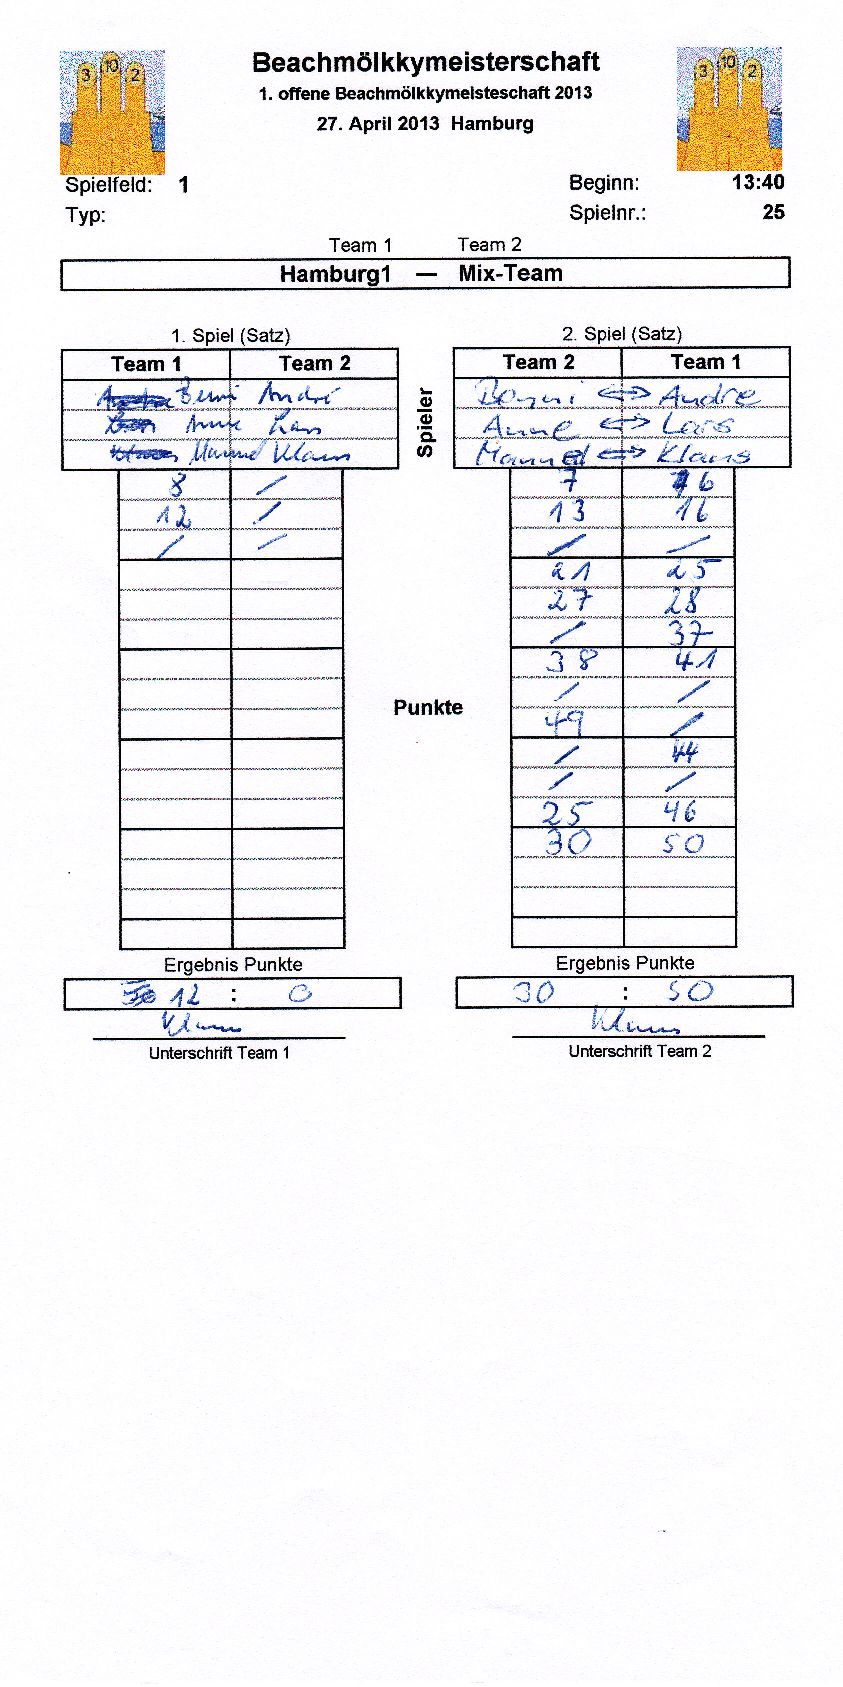 3 10 2
3 10 2
Beachmölkkymeisterschaft
1. offene Beachmölkkymeisteschaft 2013
27. April 2013 Hamburg
Spielfeld: 1
Beginn: 13:40
Typ:
Spielnr.: 25
Team 1 Team 2
Hamburg1 — Mix-Team
1. Spiel (Satz)
2. Spiel (Satz)
Team 1 Team 2
Team 2 Team 1
André
Anne Lars
Manuel Klaus
Spieler
Benni <=> Andre
Anne <=> Lars
Manuel <=> Klaus
8 /
12 /
/ /
7 6
13 16
/ /
21 25
27 28
/ 37
38 41
/ /
49 /
/ 44
/ /
25 46
30 50
Punkte
Ergebnis Punkte
Ergebnis Punkte
12 : 0
30 : 50
Klaus
Klaus
Unterschrift Team 1
Unterschrift Team 2